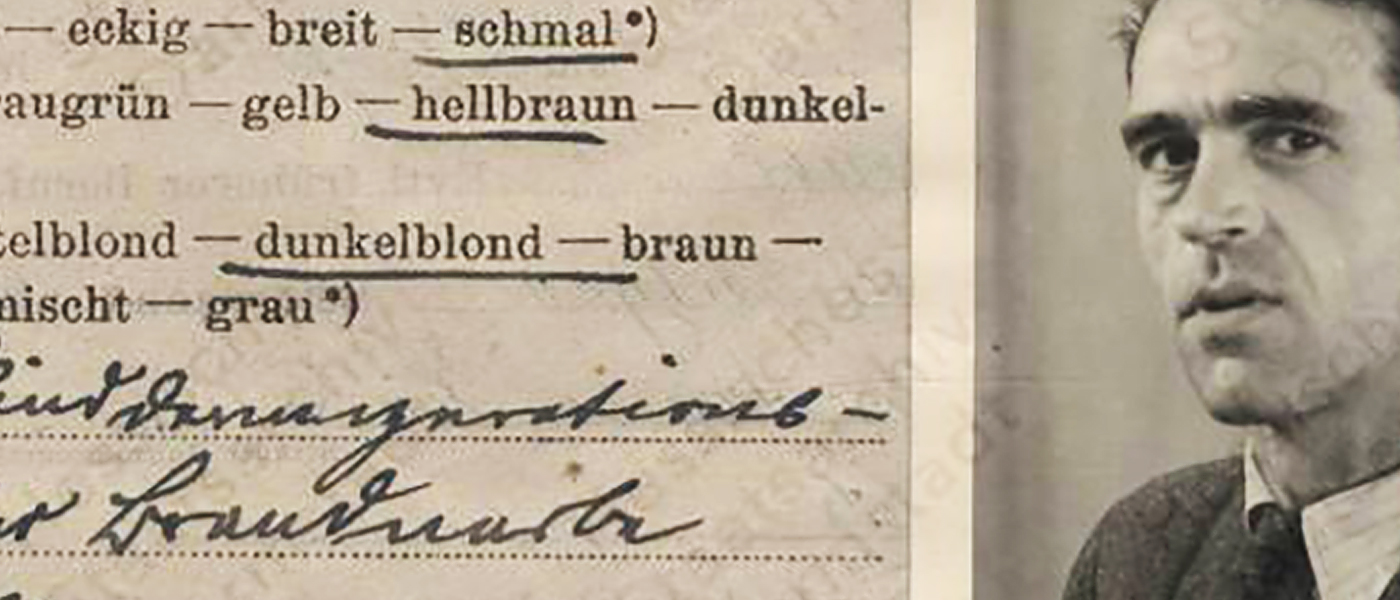 — eckig — breit — schmal*)
augrün — gelb — hellbraun — dunkel-
telblond — dunkelblond — braun —
mischt — grau*)
Brandnarbe